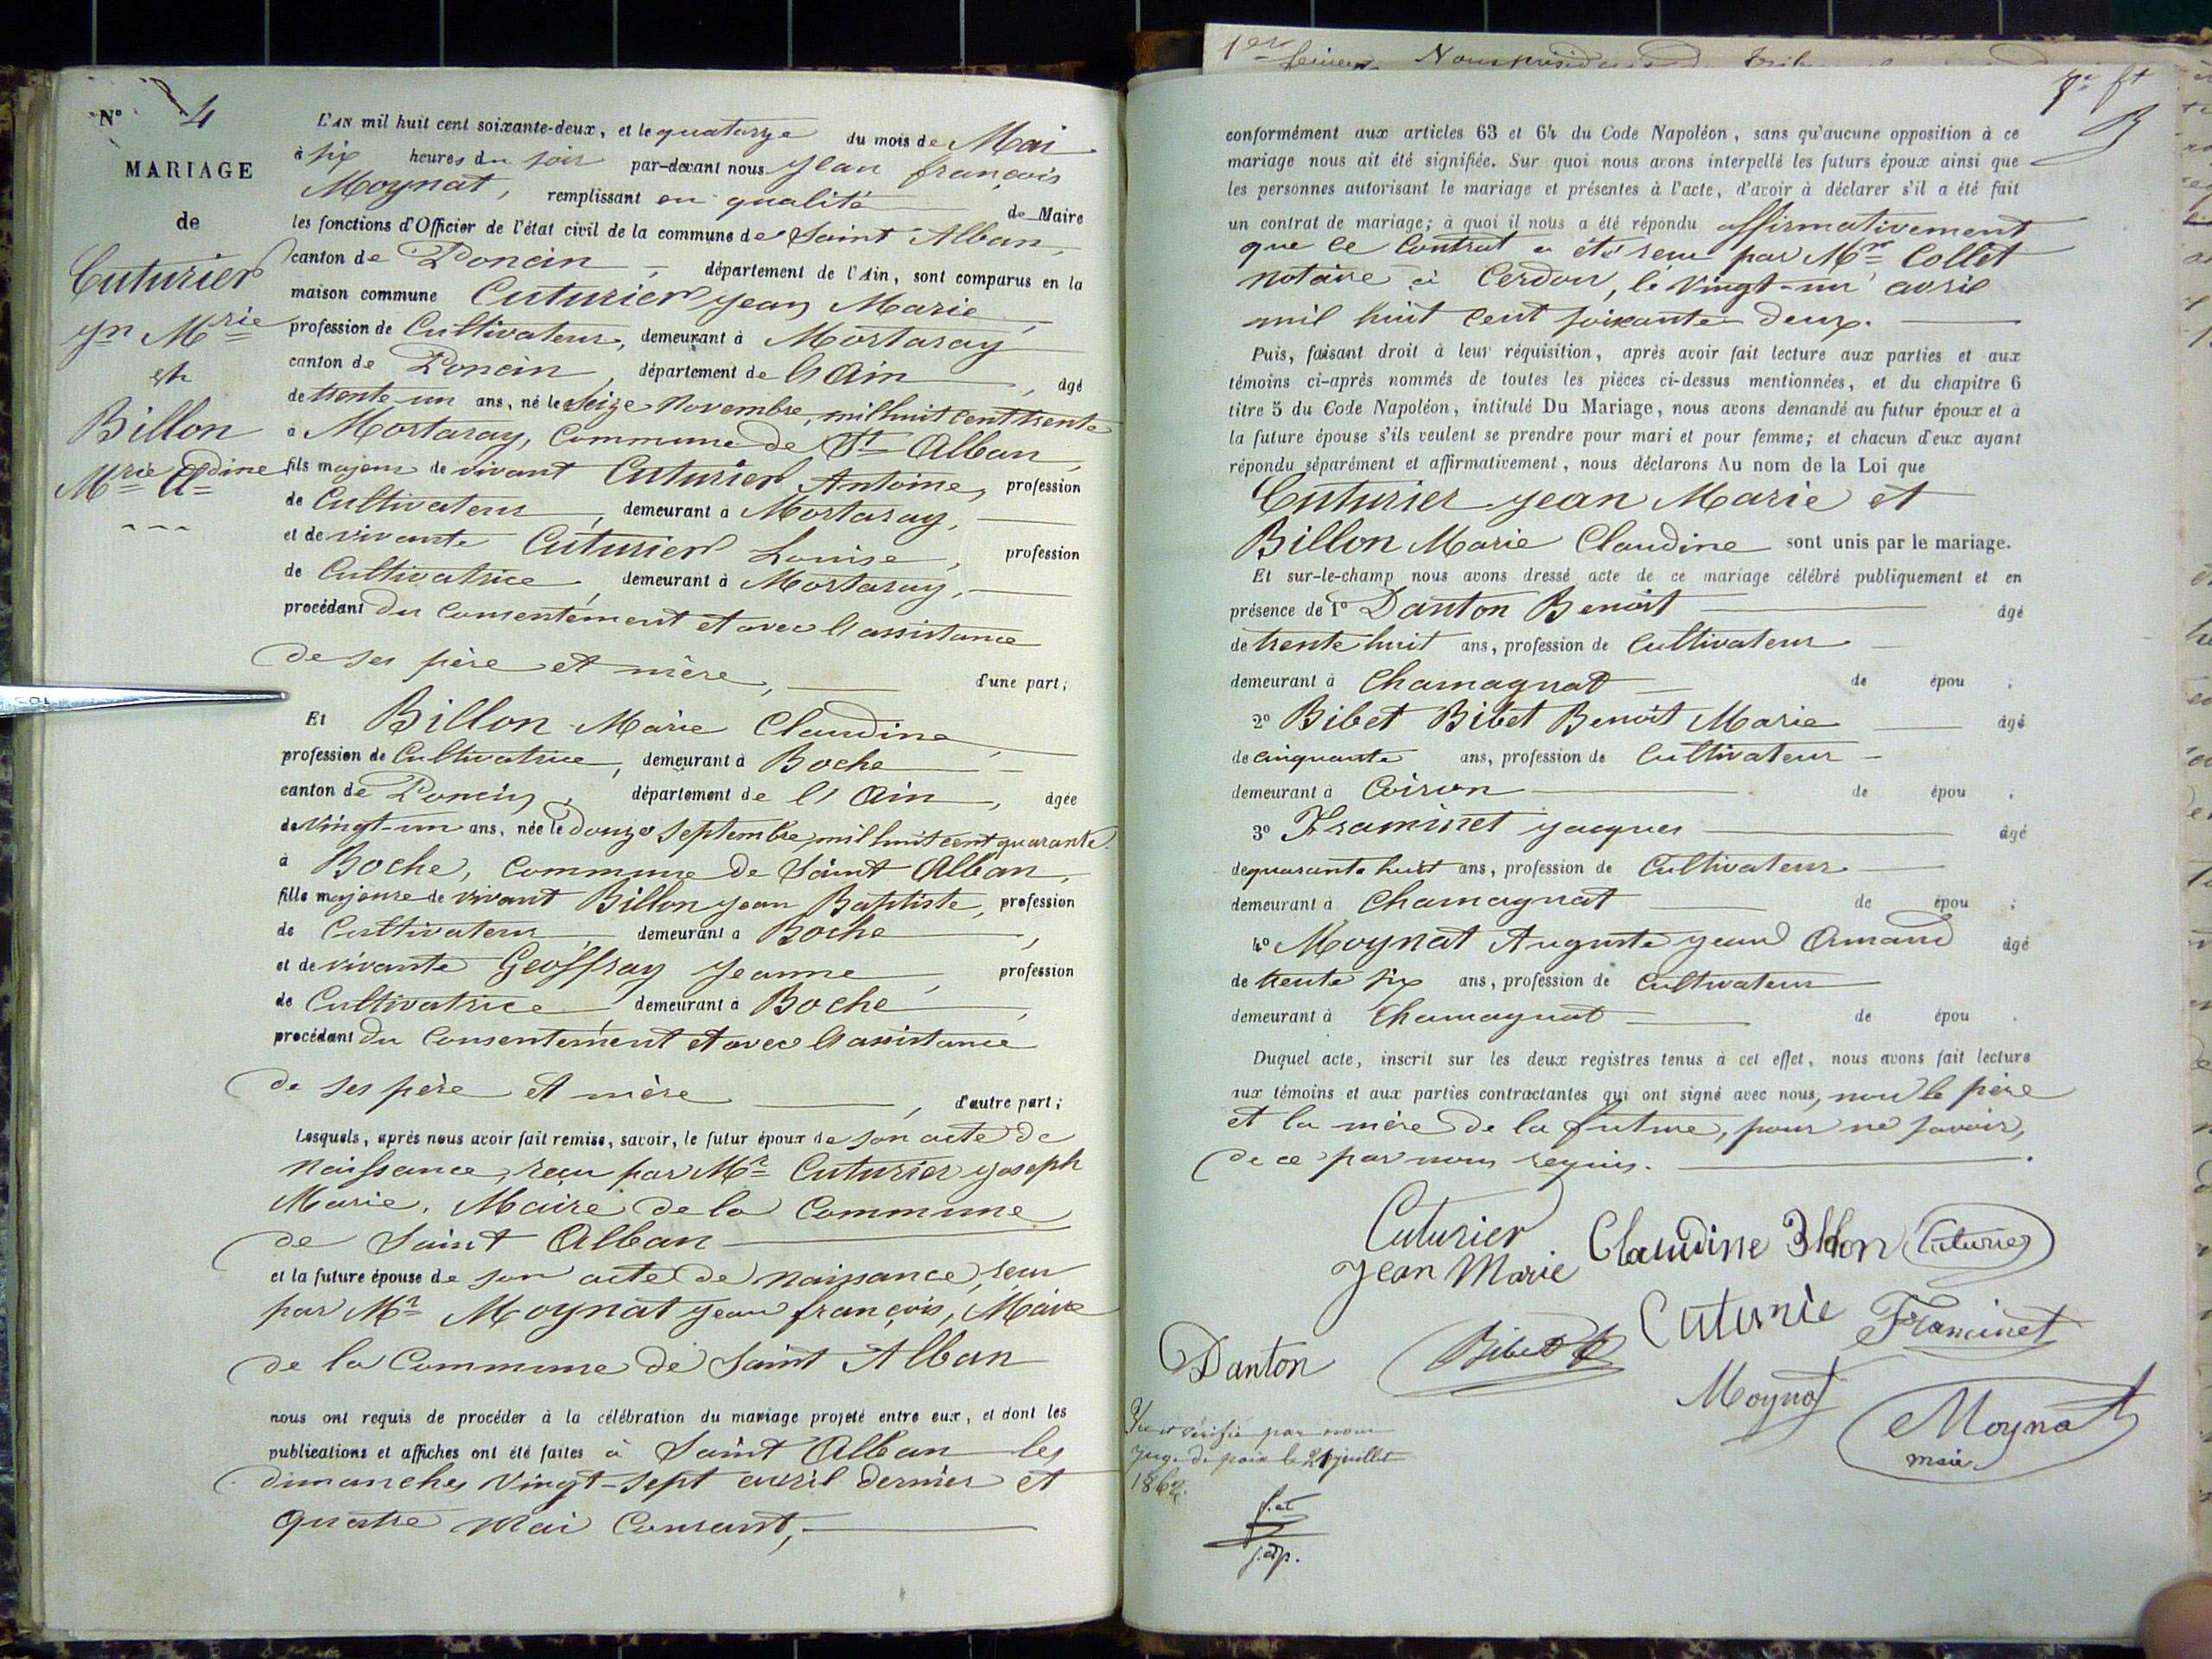 N° 4
MARIAGE
de
Cuturier
Jn Mrie
et
Billon
Mrie Cldine
L'AN mil huit cent soixante-deux, et le quatorze du mois de Mai
à six heures du soir par-devant nous Jean françois
Moynat, remplissant en qualité de Maire
les fonctions d'Officier de l'état civil de la commune de Saint Alban,
canton de Poncin, département de l'Ain, sont comparus en la
maison commune Cuturier Jean Marie,
profession de Cultivateur, demeurant à Mortaray
canton de Poncin, département de l'Ain, âgé
de trente-un ans, né le Seize Novembre, mil huit cent trente
à Mortaray, Commune de St Alban,
fils majeur de vivant Cuturier Antoine, profession
de Cultivateur, demeurant à Mortaray,
et de vivante Cuturier Louise, profession
de Cultivatrice, demeurant à Mortaray,
procédant du consentement et avec l'assistance
de ses père et mère, d'une part;
Et Billon Marie Claudine,
profession de Cultivatrice, demeurant à Boche
canton de Poncin, département de l'Ain, âgée
de vingt-un ans, née le douze Septembre, mil huit cent quarante.
à Boche, Commune de Saint Alban,
fille majeure de vivant Billon Jean Baptiste, profession
de Cultivateur demeurant à Boche,
et de vivante Geoffray Jeanne, profession
de Cultivatrice, demeurant à Boche,
procédant du Consentement et avec l'assistance
de ses père et mère, d'autre part;
Lesquels, après nous avoir fait remise, savoir, le futur époux de son acte de
Naissance, reçu par Mr Cuturier Joseph
Marie, Maire de la Commune
de Saint Alban
et la future épouse de son acte de naissance, reçu
par Mr Moynat Jean françois, Maire
de la Commune de Saint Alban
nous ont requis de procéder à la célébration du mariage projeté entre eux, et dont les
publications et affiches ont été faites à Saint Alban les
dimanches vingt-sept avril dernier et
quatre Mai Courant,
1er Nous président du
conformément aux articles 63 et 64 du Code Napoléon, sans qu'aucune opposition à ce
mariage nous ait été signifiée. Sur quoi nous avons interpellé les futurs époux ainsi que
les personnes autorisant le mariage et présentes à l'acte, d'avoir à déclarer s'il a été fait
un contrat de mariage; à quoi il nous a été répondu affirmativement
que ce Contrat a été reçu par Mr Collet
Notaire à Cerdon, le vingt-un avril
mil huit cent soixante deux.
Puis, faisant droit à leur réquisition, après avoir fait lecture aux parties et aux
témoins ci-après nommés de toutes les pièces ci-dessus mentionnées, et du chapitre 6
titre 5 du Code Napoléon, intitulé Du Mariage, nous avons demandé au futur époux et à
la future épouse s'ils veulent se prendre pour mari et pour femme; et chacun d'eux ayant
répondu séparément et affirmativement, nous déclarons Au nom de la Loi que
Cuturier Jean Marie et
Billon Marie Claudine sont unis par le mariage.
Et sur-le-champ nous avons dressé acte de ce mariage célébré publiquement et en
présence de 1° Danton Benoit âgé
de trente huit ans, profession de Cultivateur
demeurant à Chamagnat de épou ;
2° Bibet Bibet Benoit Marie âgé
de cinquante ans, profession de Cultivateur
demeurant à Coiron de épou .
3° Framinet Jacques âgé
de quarante huit ans, profession de Cultivateur
demeurant à Chamagnat de épou ;
4° Moynat Auguste Jean Armand âgé
de trente six ans, profession de Cultivateur
demeurant à Chamagnat de épou .
Duquel acte, inscrit sur les deux registres tenus à cet effet, nous avons fait lecture
aux témoins et aux parties contractantes qui ont signé avec nous, non le père
et la mère de la future, pour ne savoir,
de ce par nous requis.
Cuturier
Jean Marie Claudine Billon Cuturier
Cuturie Framinet
Danton Bibet
Moynat Moynat
maire
Vu et vérifié par nous
juge de paix le 21 juillet
1862.